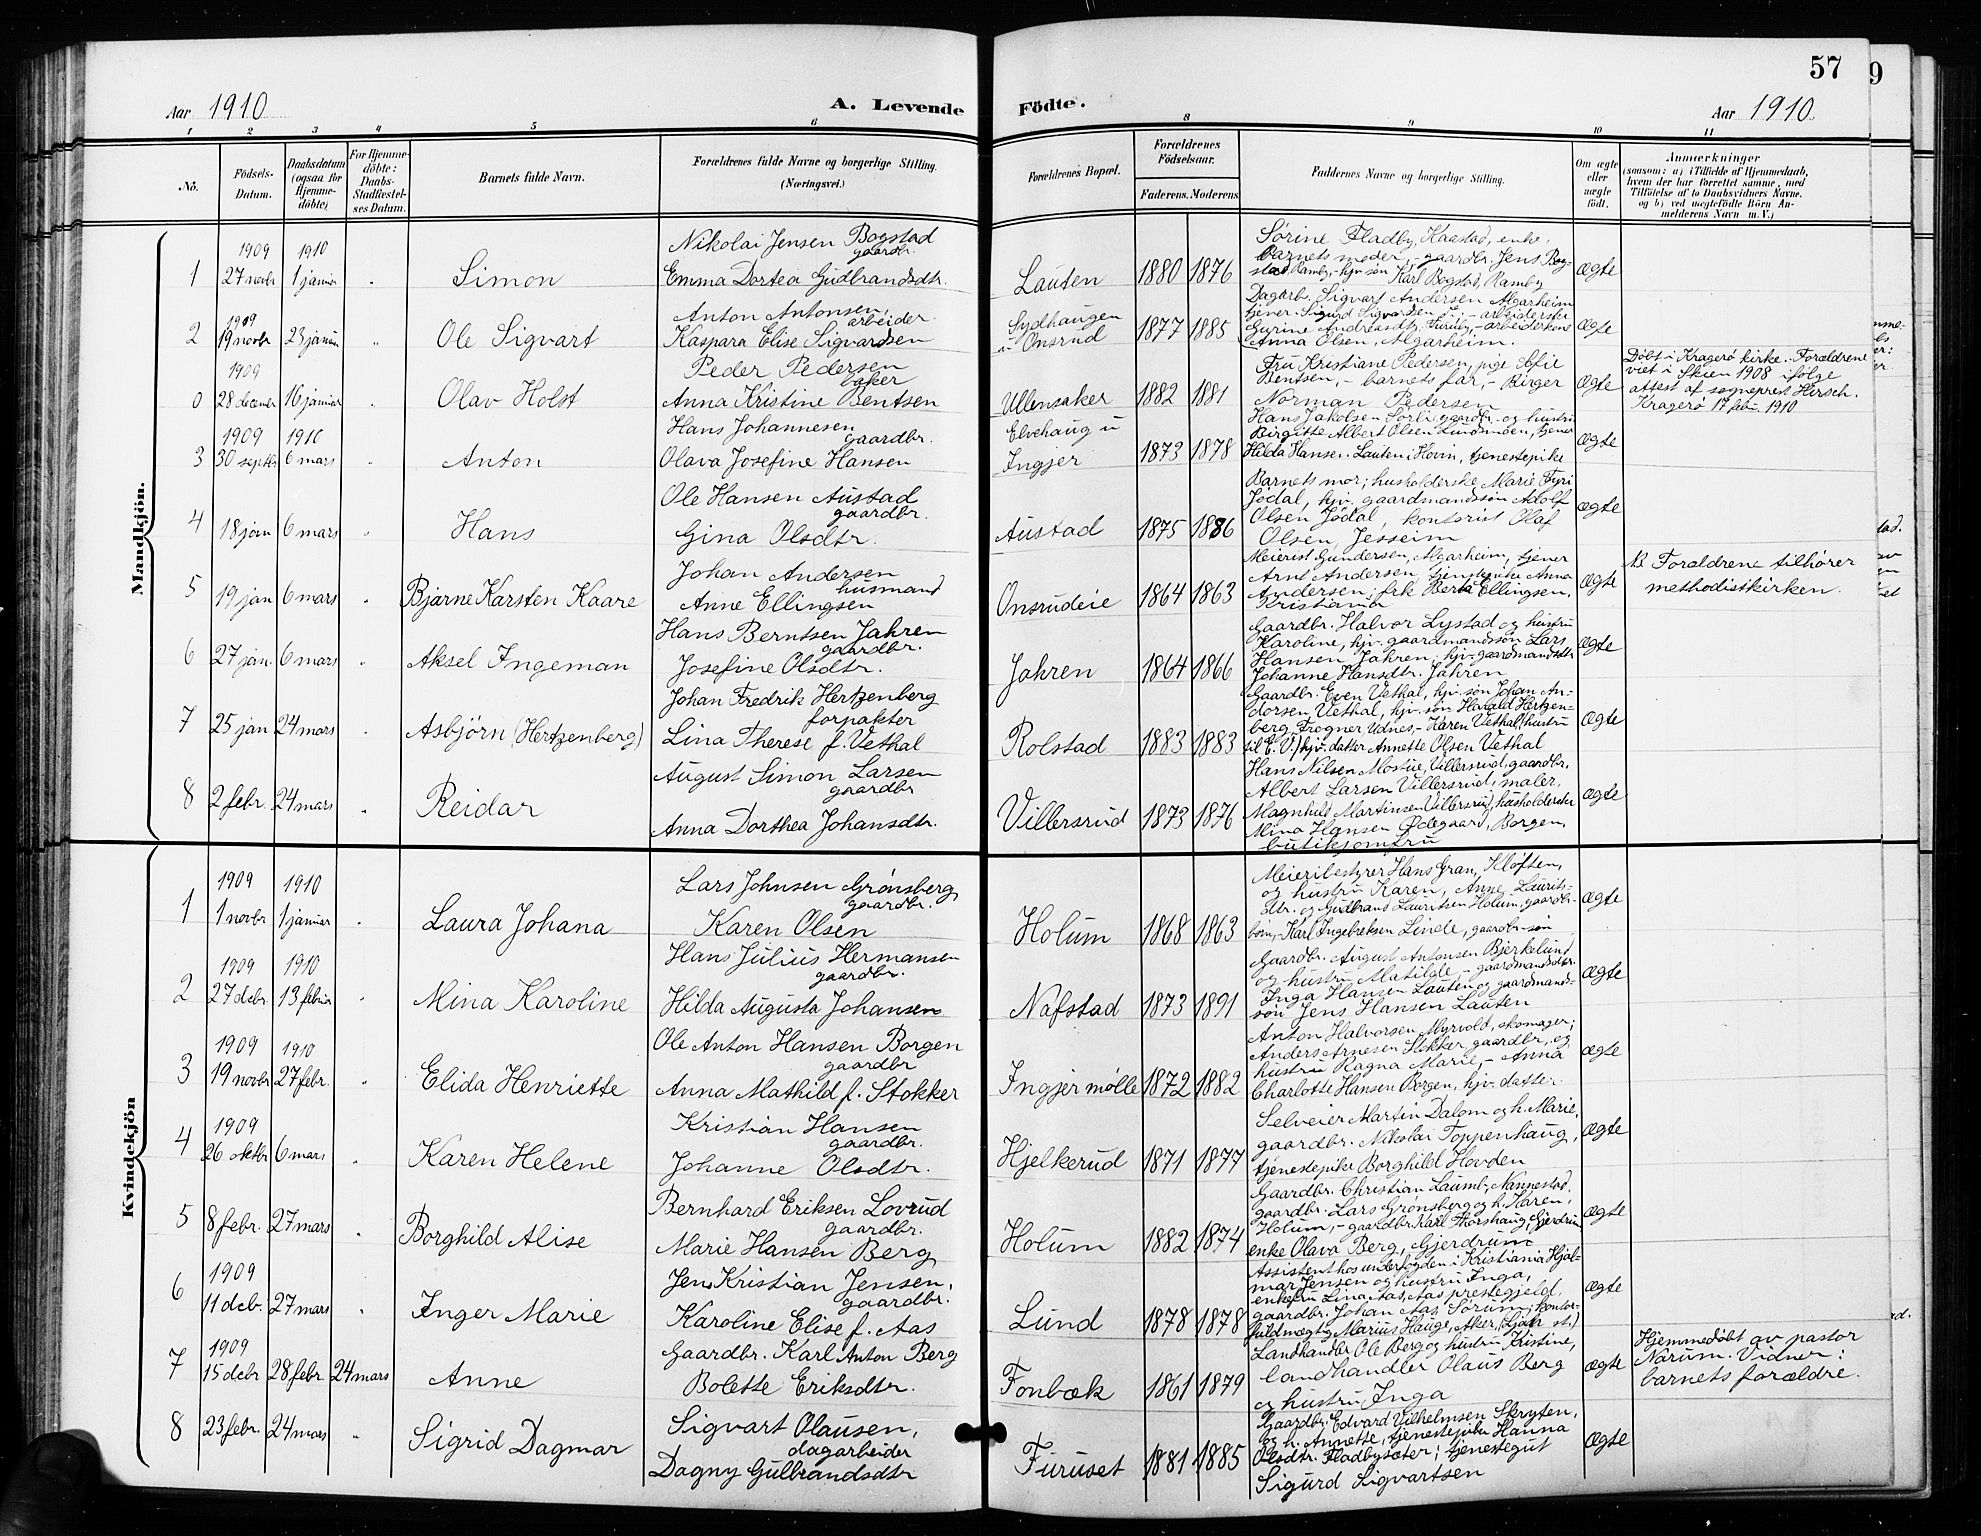 57
9
Aar 1910
A. Levende
Födte.
Aar 1910
1 2 3 4 5 6 8 9 10 11
No.
Födsels-
Datum.
Daabsdatum
(ogsaa for
Hjemme-
döbte)
For Hjemme-
döbte:
Daabs-
Stadfæstel-
ses Datum.
Barnets fulde Navn.
Forældrenes fulde Navne og borgerlige Stilling.
(Næringsvei.)
Forældrenes Bopæl.
Forældrenes
Födselsaar.
Faderens. Moderens.
Faddernes Navne og borgerlige Stilling.
Om ægte
eller
uægte
födt.
Anmærkninger
(saasom: a) i Tilfælde af Hjemmedaab,
hvem der har forrettet samme, med
Tilföielse af to Daabsvidners Navne.
og b) ved uegtefödte Börn An-
melderens Navn m.V.)
Mandkjön.
1909 1910
1 27 novbr 1 januar
Simon
Nikolai Jensen Bogstad
gaardbr.
Emma Dortea Gudbrandsdtr.
Lauten 1880 1876
Sørine Fladby, Kaastad, enke,
barnets moder, - gaardbr. Jens Bog-
stad Ramby, - hjv. søn Karl Bogstad, Ramby
Ægte
1909
2 19 novbr 23 januar
Ole Sigvart
Anton Antonsen,
arbeider
Kaspara Elise Sigvardsen
Sydhaugen
u Onsrud 1877 1885
Dagarb. Sigvart Andersen Algarheim
tjener Sigurd Sigvardsen
Anna Olsen, Algarheim.
Ægte
1909
0 28 decemer 16 januar
Olav Holst
Peder Pedersen
baker
Anna Kristine Bentsen
Ullensaker 1882 1881
Fru Kristiane Pedersen, pige Sofie
Bentsen, - barnets far, - Birger
Norman Pedersen
Ægte
Døbt i Kragerø kirke. Forældrene
viet i Skien 1908 ifølge
attest af sogneprest Hirsch.
Kragerø 17 febr. 1910
1909 1910
3 30 septbr 6 mars
Anton
Hans Johannesen
gaardbr.
Olava Josefine Hansen
Elvehaug u
Ingjer 1873 1878
Hans Jakobsen Sørli gaardbr. og hustru
Birgitte Albert Olsen Lundsmoen, tjener
Hilda Hansen Lauten i Hovin, tjenestepike
Ægte
4 18 jan 6 mars
Hans
Ole Hansen Austad
gaardbr.
Gina Olsdtr.
Austad 1875 1886
Barnets mor; husholderske Marie Fyri
Jødal, hjv. gaardmandssøn Adolf
Olsen Jødal, kontorist Olaf
Olsen, Jesseim
Ægte
5 19 jan 6 mars
Bjarne Karsten Kaare
Johan Andersen
husmand
Anne Ellingsen
Onsrudeie 1864 1863
Meierist Gundersen, Algarheim, tjener
Arnt Andersen, tjenstepike Anna
Andersen; frk Berta Ellingsen,
Kristiania
Ægte
NB Forældrene tilhører
methodistkirken.
6 27 jan. 6 mars
Aksel Ingeman
Hans Berntsen Jahren
gaardbr.
Josefine Olsdtr.
Jahren 1864 1866
Gaardbr. Halvor Lystad og hustru
Karoline, hjv. gaardmandssøn Lars
Hansen Jahren, hjv. gaardmandsdtr
Johanne Hansdtr. Jahren
Ægte
7 25 jan 24 mars
Asbjörn (Hertzenberg)
Johan Fredrik Hertzenberg
forpakter
Lina Therese f. Vethal
Rolstad 1883 1883
Gaardbr. Even Vethal, hjv. søn Johan An-
dersen Vethal, hjv. søn Harald Hertzen-
berg, Frogner Udnes, - Karen Vethal (hustru
til E. V.) hjv. datter Annette Olsen Vethal
Ægte
8 2 febr. 24 mars
Reidar
August Simon Larsen
gaardbr
Anna Dorthea Johansdtr.
Villersrud 1873 1876
Hans Nilsen Mostue, Villersrud, gaardbr.
Albert Larsen Villersrud, maler,
Magnhild Martinsen Villersrud, husholderske
Mina Hansen Ødegaard, Borgen,
butiksjomfru
Ægte
Kvindekjön
1909 1910
1 1 novbr 1 januar
Laura Johana
Lars Johnsen Grønsberg
gaardbr.
Karen Olsen
Holum 1868 1863
Meieribestyrer Hans Gran, Kløften,
og hustru Karen, Anne Laurits-
dtr. og Gudbrand Lauritsen Holum, gaardbr-
børn, Karl Ingebretsen Linde, gaardbr. søn
Ægte
1909 1910
2 27 decbr. 13 februar
Mina Karoline
Hans Julius Hermansen
gaardbr.
Hilda Augusta Johansen
Nafstad 1873 1891
Gaardbr. August Antonsen Bjerkelund
og hustru Matilde, - gaardmandsdtr.
Inga Hansen Lauten og gaardmands-
søn Jens Hansen Lauten
Ægte
1909 1910
3 19 novbr 27 febr.
Elida Henriette
Ole Anton Hansen Borgen
gaardbr
Anna Mathild f. Stokker
Ingjer mølle 1872 1882
Anton Halvorsen Myrvold, skomager;
Anders Arnesen Stokker gaardbr., og
hustru Ragna Marie, - Anna
Charlotte Hansen Borgen, hjv. datter.
Ægte
1909
4 26 oktbr 6 mars
Karen Helene
Kristian Hansen
gaardbr.
Johanne Olsdtr.
Hjelkerud 1871 1877
Selveier Martin Dalom og h. Marie,
gaardbr. Nikolai Toppenhaug,
tjenestepike Borghild Hovden
Ægte
5 8 febr. 27 mars
Borghild Alise
Bernhard Eriksen Lovrud
gaardbr.
Marie Hansen Berg
Holum 1882 1874
Gaardbr. Christian Laumb, Nannestad,
gaardbr. Lars Grønsberg og h. Karen,
Holum, - gaardbr. Karl Thorshaug, Gjerdrum
enke Olava Berg, Gjerdrum
Ægte
1909
6 11 decbr. 27 mars
Inger Marie
Jens Kristian Jensen,
gaardbr.
Karoline Elise f. Aas
Lund 1878 1878
Assistent hos underfogden i Kristiania Hjal-
mar Jensen og hustru Inga,
enkefru Lina Aas, Aas prestegjeld,
gaardbr. Johan Aas, Sørum; kontor-
fuldmægtig Marius Hauge, Aker, (Ljan st.)
Ægte
1909
7 15 decbr 28 febr. 24 mars
Anne
Gaardbr. Karl Anton Berg
Bolette Eriksdtr.
Fonbæk 1861 1879
Landhandler Ole Berg og hustru Kristine,
landhandler Olaus Berg
og hustru Inga
Ægte
Hjemmedøbt av pastor
Narum. Vidner:
barnets forældre.
8 23 febr. 24 mars
Sigrid Dagmar
Sigvart Olausen,
dagarbeider
Dagny Gulbrandsdtr
Furuset 1881 1885
Gaardbr. Edvard Vilhelmsen Skryten,
og h. Annette, tjenestepike Hanna
Olsdtr. Fladbysæter; tjenestegut
Sigurd Sigvartsen
Ægte